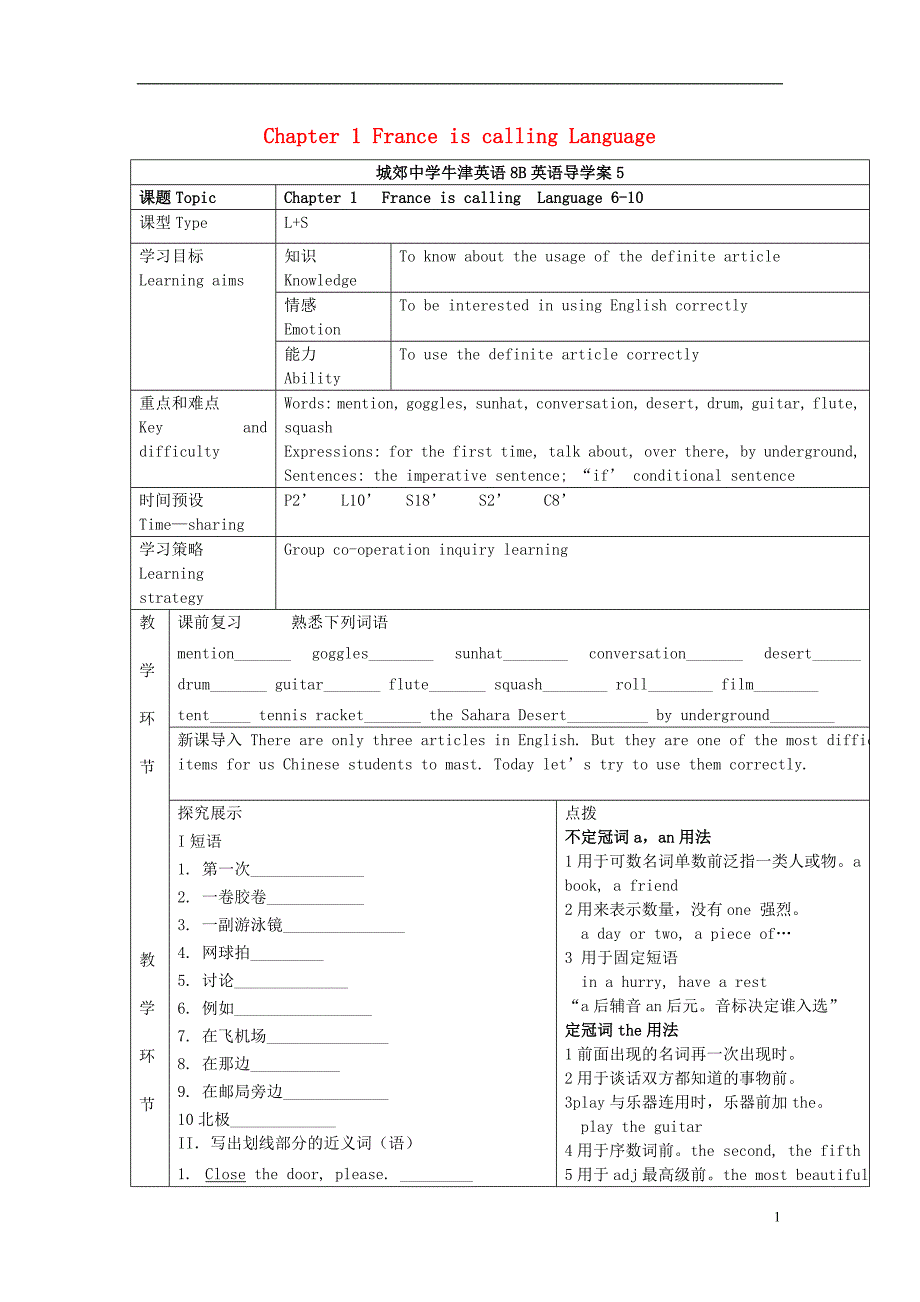 Chapter 1 France is calling Language
城郊中学牛津英语 8B 英语导学案 5
课题 Topic
Chapter 1 France is calling Language 6-10
课型 Type
L+S
学习目标
Learning aims
知识
Knowledge
To know about the usage of the definite article
情感
Emotion
To be interested in using English correctly
能力
Ability
To use the definite article correctly
重点和难点
Key and
difficulty
Words: mention, goggles, sunhat, conversation, desert, drum, guitar, flute,
squash
Expressions: for the first time, talk about, over there, by underground,
Sentences: the imperative sentence; “if’ conditional sentence
时间预设
Time—sharing
P2’ L10’ S18’ S2’ C8’
学习策略
Learning
strategy
Group co-operation inquiry learning
教
学
环
节
课前复习 熟悉下列词语
mention_______ goggles________ sunhat________ conversation_______ desert______
drum_______ guitar_______ flute_______ squash________ roll________ film________
tent_____ tennis racket_______ the Sahara Desert__________ by underground________
新课导入 There are only three articles in English. But they are one of the most diffic
items for us Chinese students to mast. Today let’s try to use them correctly.
教
学
环
节
探究展示
I 短语
1. 第一次______________
2. 一卷胶卷____________
3. 一副游泳镜_______________
4. 网球拍_________
5. 讨论______________
6. 例如_________________
7. 在飞机场_______________
8. 在那边___________
9. 在邮局旁边_____________
10 北极_____________
II．写出划线部分的近义词（语）
1. Close the door, please. _________
点拨
不定冠词 a，an 用法
1 用于可数名词单数前泛指一类人或物。a
book, a friend
2 用来表示数量，没有 one 强烈。
a day or two, a piece of…
3 用于固定短语
in a hurry, have a rest
“a 后辅音 an 后元。音标决定谁入选”
定冠词 the 用法
1 前面出现的名词再一次出现时。
2 用于谈话双方都知道的事物前。
3play 与乐器连用时，乐器前加 the。
play the guitar
4 用于序数词前。the second, the fifth
5 用于 adj 最高级前。the most beautiful
1